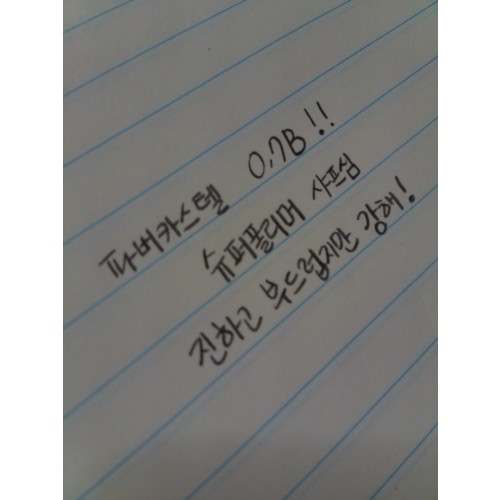 파버카스텔 0.7B!!
슈퍼폴리머 샤프심
진하고 부드럽지만 강해!